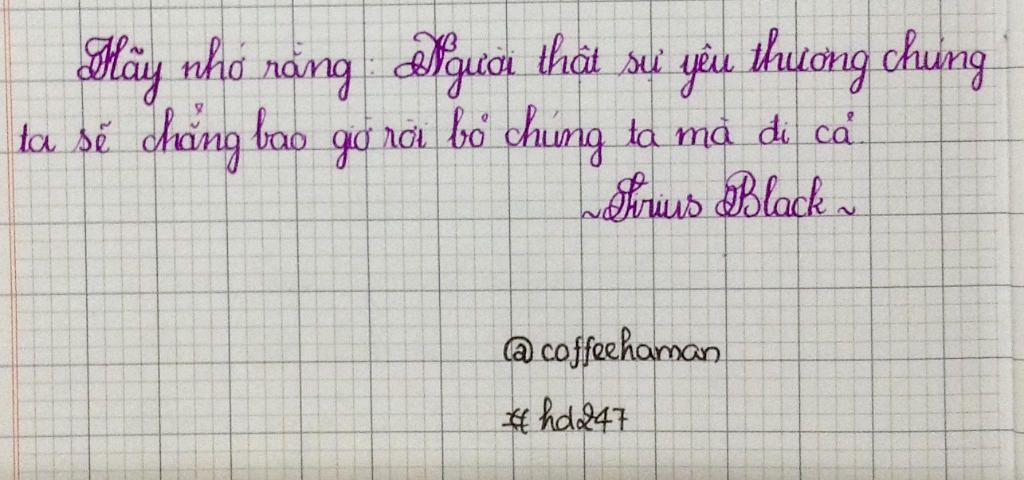 Hãy nhớ rằng: Người thật sự yêu thương chúng
ta sẽ chẳng bao giờ rời bỏ chúng ta mà đi cả.
~Sirius Black~
@coffeehaman
#hd247